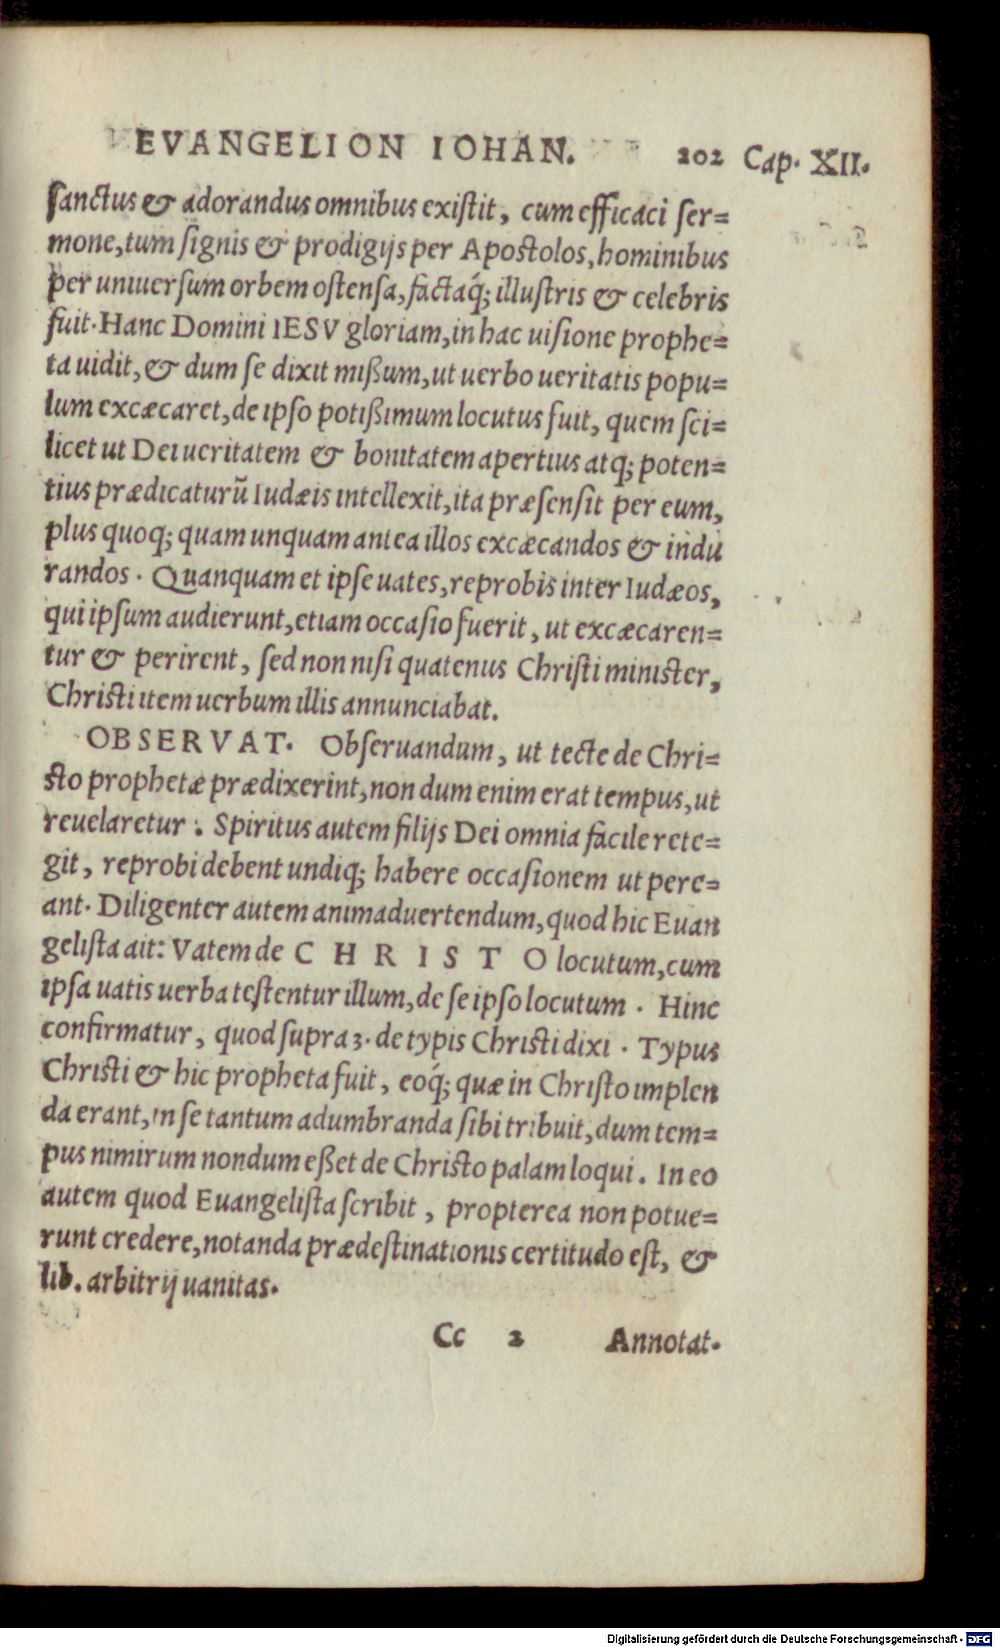 EVANGELION IOHAN. 202 Cap. XII.
sanctus & adorandus omnibus existit, cum efficaci ser=
mone, tum signis & prodigijs per Apostolos, hominibus
per uniuersum orbem ostensa, factaq́; illustris & celebris
fuit. Hanc Domini IESV gloriam, in hac uisione prophe=
ta uidit, & dum se dixit mißum, ut uerbo ueritatis popu=
lum excæcaret, de ipso potißimum locutus fuit, quem sci=
licet ut Dei ueritatem & bonitatem apertius atq; poten=
tius prædicaturũ Iudæis intellexit, ita præsensit per eum,
plus quoq; quam unquam antea illos excæcandos & indu
randos. Quanquam et ipse uates, reprobis inter Iudæos,
qui ipsum audierunt, etiam occasio fuerit, ut excæcaren=
tur & perirent, sed non nisi quatenus Christi minister,
Christi item uerbum illis annunciabat.
OBSERVAT. Obseruandum, ut tecte de Chri=
sto prophetæ prædixerint, non dum enim erat tempus, ut
reuelaretur: Spiritus autem filijs Dei omnia facile rete=
git, reprobi debent undiq; habere occasionem ut pere=
ant. Diligenter autem animaduertendum, quod hic Euan
gelista ait: Vatem de CHRISTO locutum, cum
ipsa uatis uerba testentur illum, de se ipso locutum. Hinc
confirmatur, quod supra 3. de typis Christi dixi. Typus
Christi & hic propheta fuit, eoq́; quæ in Christo implen
da erant, in se tantum adumbranda sibi tribuit, dum tem=
pus nimirum nondum eßet de Christo palam loqui. In eo
autem quod Euangelista scribit, propterea non potue=
runt credere, notanda prædestinationis certitudo est, &
lib. arbitrij uanitas.
Cc 2 Annotat.
Digitalisierung gefördert durch die Deutsche Forschungsgemeinschaft - DFG